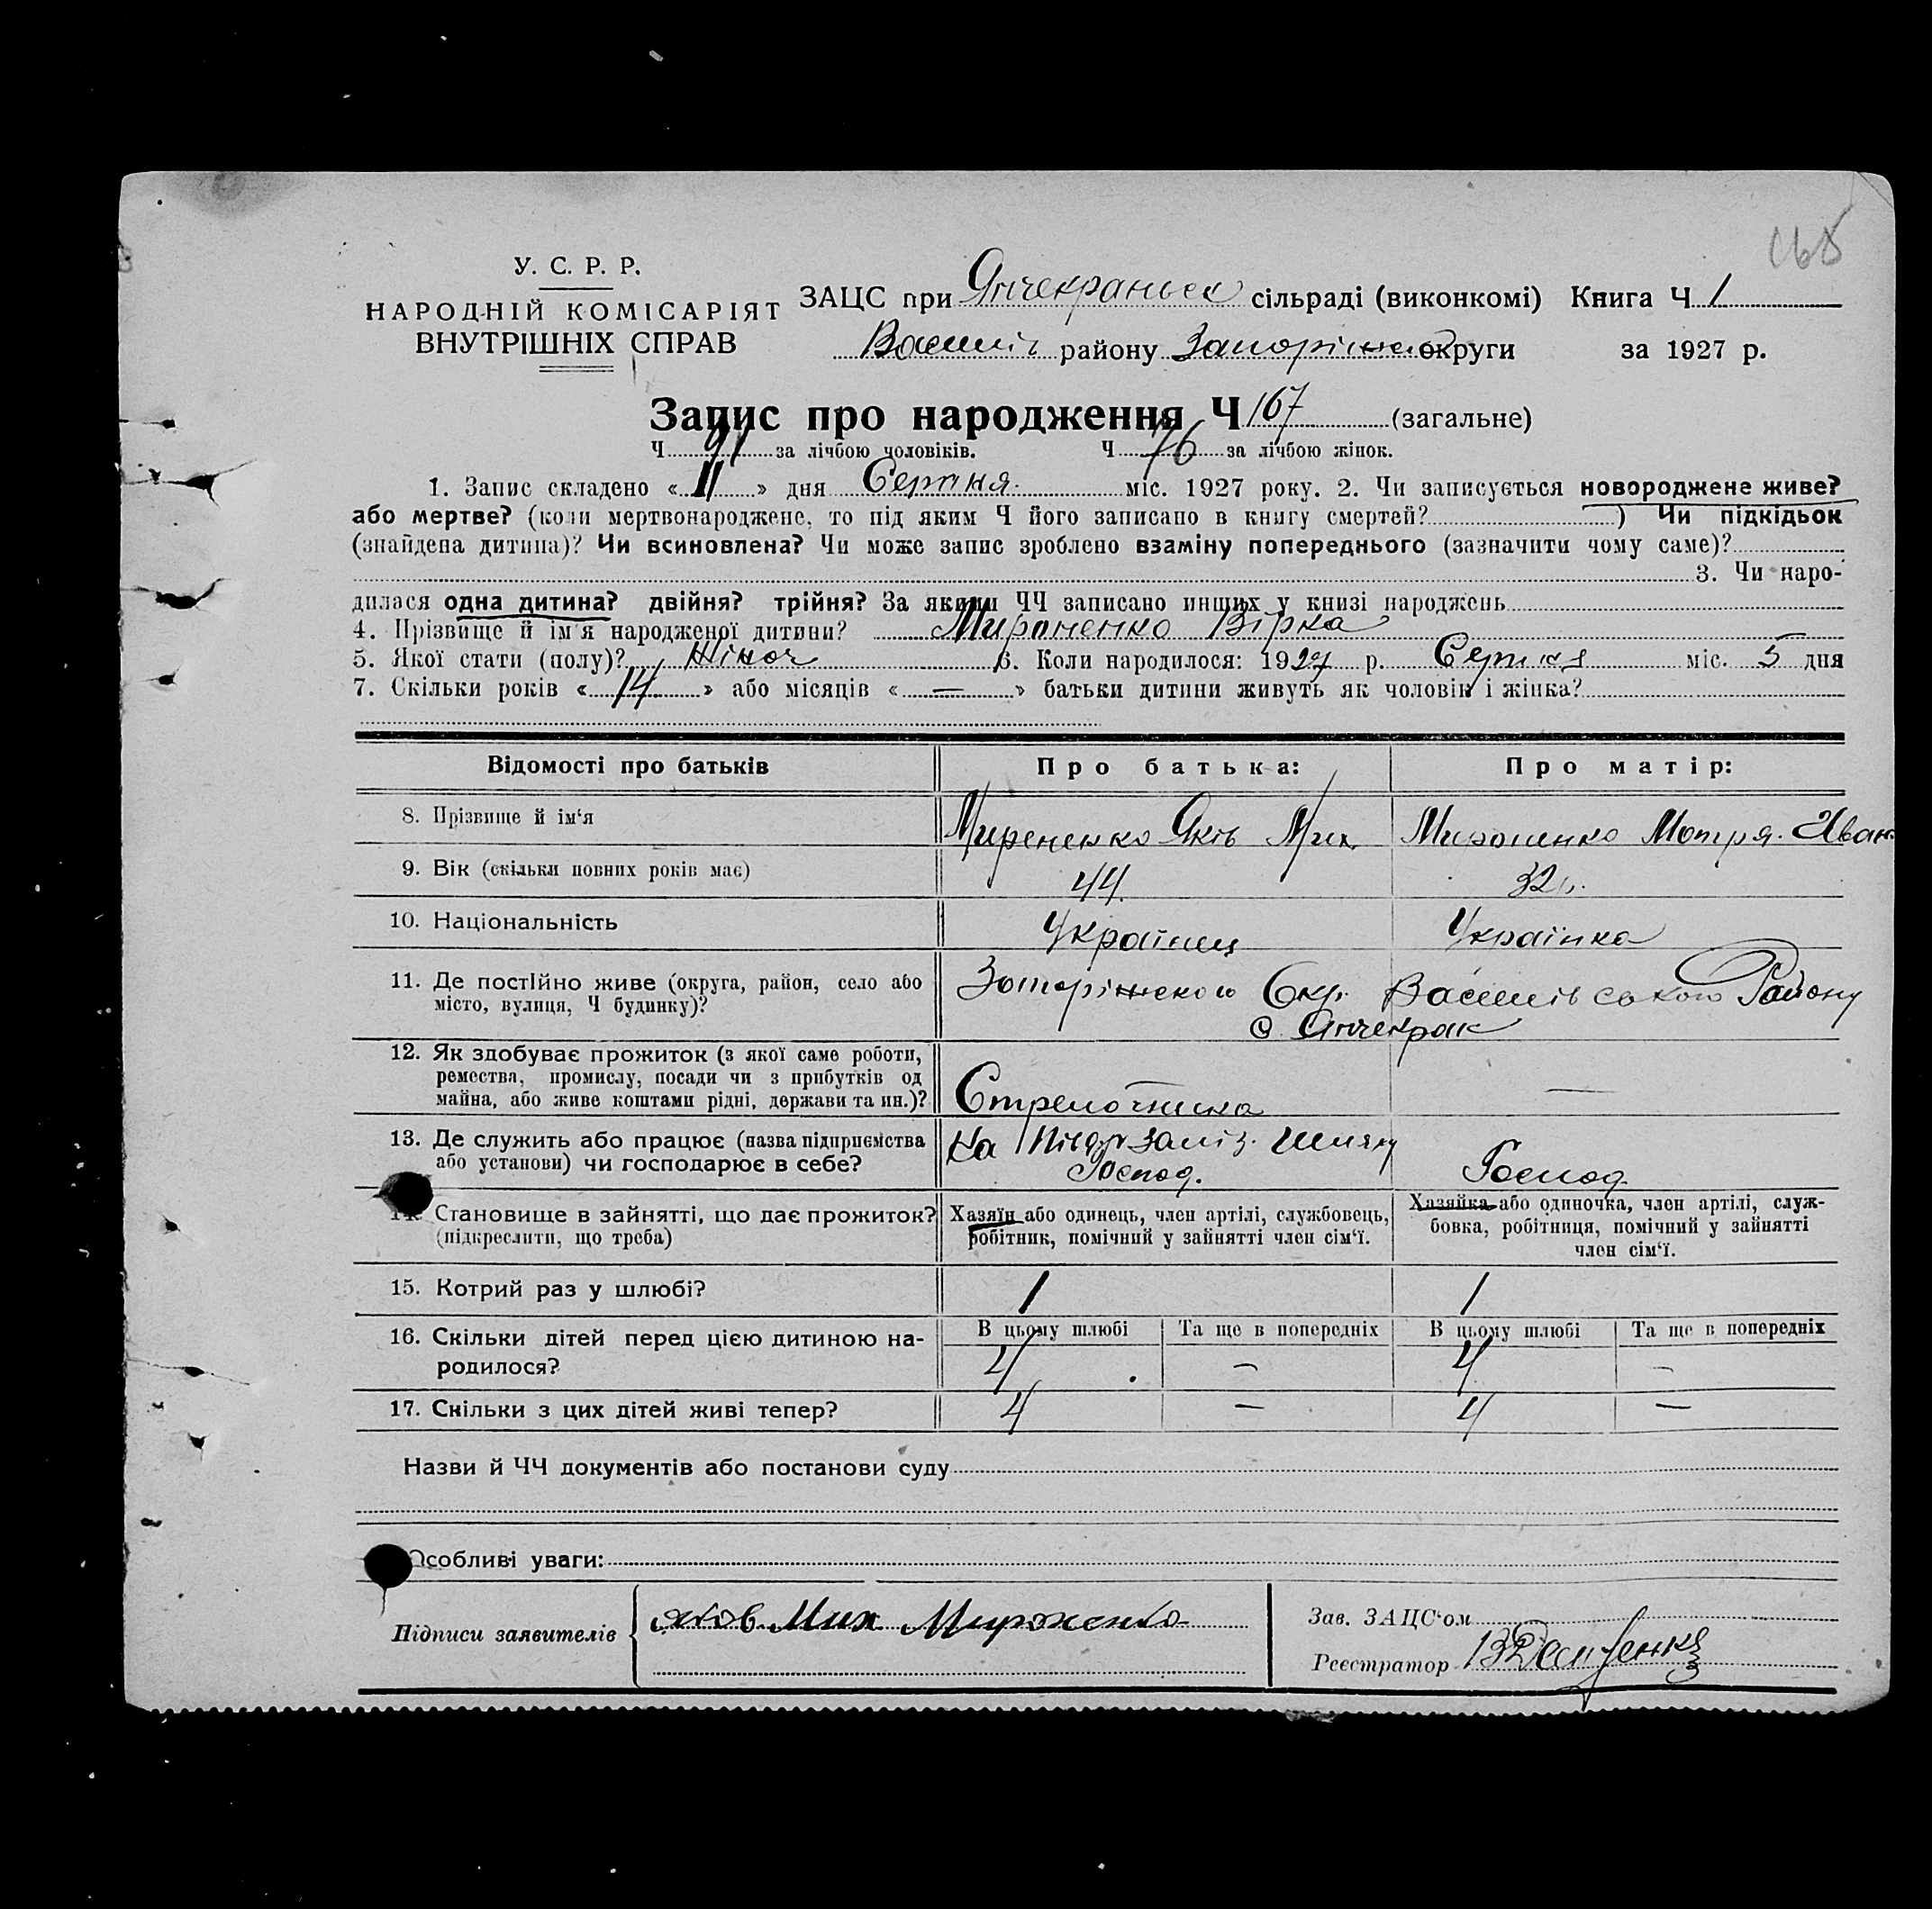 168
У. С. Р. Р.
НАРОДНІЙ КОМІСАРІЯТ
ВНУТРІШНІХ СПРАВ
ЗАЦС при Янчекраньск сільраді (виконкомі) Книга Ч 1
Васильів району Запоріжської округи за 1927 р.
Запис про народження Ч 167 (загальне)
Ч 91 за лічбою чоловіків. Ч 76 за лічбою жінок.
1. Запис складено « 11 » дня Серпня міс. 1927 року. 2. Чи записується новороджене живе?
або мертве? (коли мертвонароджене, то під яким Ч його записано в книгу смертей? ) Чи підкідьок
(знайдена дитина)? Чи всиновлена? Чи може запис зроблено взаміну попереднього (зазначити чому саме)?
3. Чи наро-
дилася одна дитина? двійня? трійня? За якими ЧЧ записано инших у книзі народжень
4. Прізвище й ім'я народженої дитини? Мироненко Вірка
5. Якої стати (полу)? Жіноч 6. Коли народилося: 1927 р. Серпня міс. 5 дня
7. Скільки років « 14 » або місяців « — » батьки дитини живуть як чоловік і жінка?
Відомості про батьків Про батька: Про матір:
8. Прізвище й ім'я Мироненко Яків Мих. Мироненко Мотря Иван
9. Вік (скільки повних років має) 44 32
10. Національність Українец Українка
11. Де постійно живе (округа, район, село або
місто, вулиця, Ч будинку)? Запоріжского Окр. Васильівського Району
с. Янчекрак
12. Як здобуває прожиток (з якої саме роботи,
ремества, промислу, посади чи з прибутків од
майна, або живе коштами рідні, держави та ин.)? Стрелочника —
13. Де служить або працює (назва підприємства
або установи) чи господарює в себе? На заліз. шляху
Господ. Господ.
14. Становище в зайнятті, що дає прожиток?
(підкреслити, що треба)
Хазяїн або одинець, член артілі, службовець,
робітник, помічний у зайнятті член сім'ї.
Хазяйка або одиночка, член артілі, служ-
бовка, робітниця, помічний у зайнятті
член сім'ї.
15. Котрий раз у шлюбі? 1 1
В цьому шлюбі Та ще в попередніх В цьому шлюбі Та ще в попередніх
16. Скільки дітей перед цією дитиною на-
родилося? 4 — 4 —
17. Скільки з цих дітей живі тепер? 4 — 4 —
Назви й ЧЧ документів або постанови суду
Особливі уваги:
Підписи заявителів Яков Мих Мироненко
Зав. ЗАЦС'ом
Реєстратор